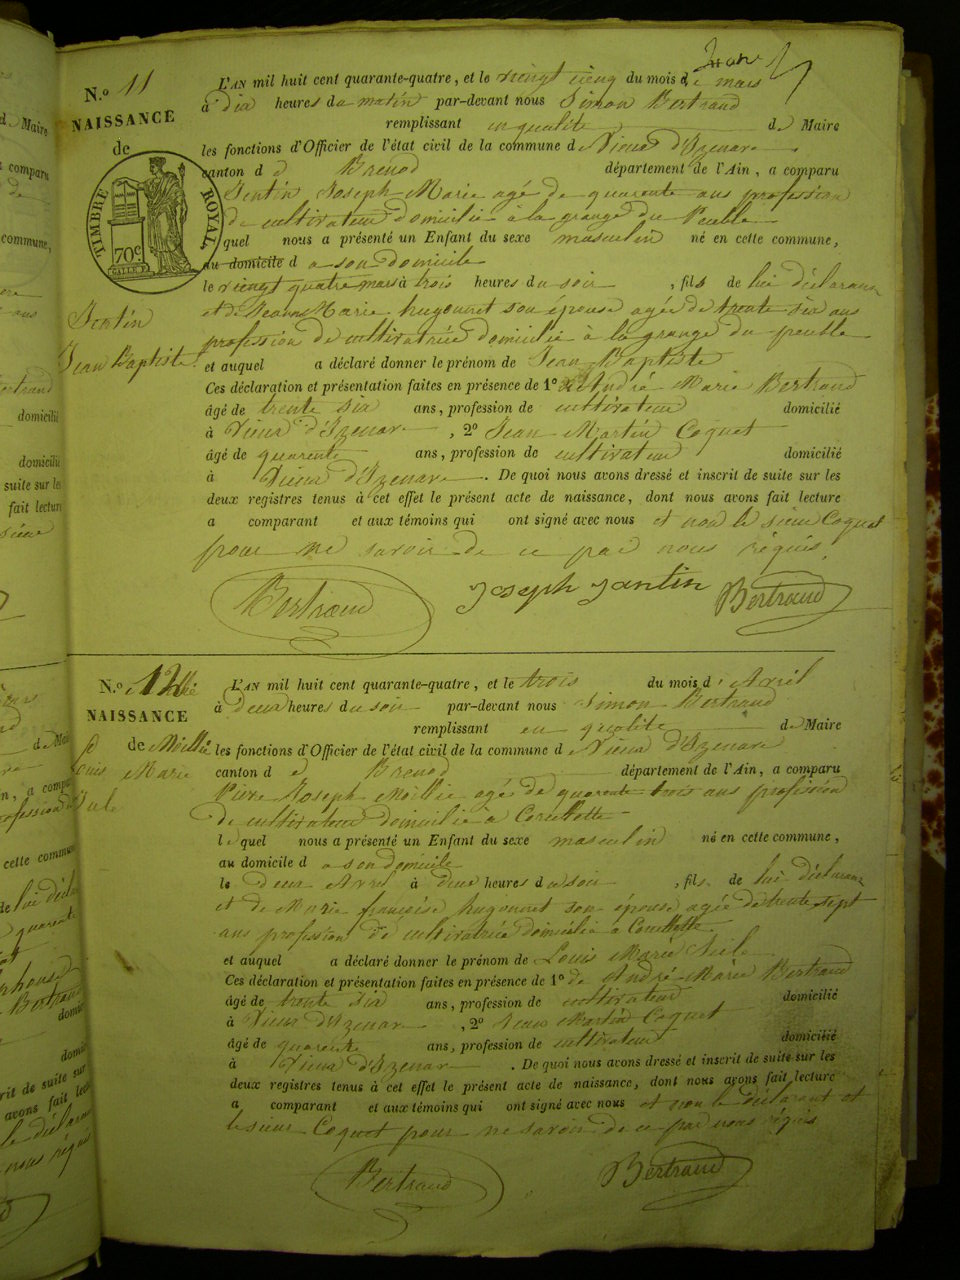 N.º 11
NAISSANCE
de
TIMBRE ROYAL
70c
Jentin
Jean Baptiste
L'AN mil huit cent quarante-quatre, et le vingt cinq du mois de mars
à dix heures du matin par-devant nous Simon Bertrand
remplissant en qualité de Maire
les fonctions d'Officier de l'état civil de la commune d Vieux d'Izenave
canton d Brenod département de l'Ain, a comparu
Jentin Joseph Marie agé de quarente ans profession
de cultivateur domicilié à la grange du Peuble
quel nous a présenté un Enfant du sexe masculin né en cette commune,
au domicile d a son domicile
le vingt quatre mars à trois heures du soir , fils de lui déclarant
et de Jeanne Marie hugonnet son épouse agée de trente six ans
profession de cultivatrice domicilié à la grange du peuble
et auquel a déclaré donner le prénom de Jean Baptiste
Ces déclaration et présentation faites en présence de 1º de André Marie Bertrand
âgé de trente six ans, profession de cultivateur domicilié
à Vieux d'Izenave , 2º Jean Martin Coquet
âgé de quarente ans, profession de cultivateur domicilié
à Vieux d'Izenave . De quoi nous avons dressé et inscrit de suite sur les
deux registres tenus à cet effet le présent acte de naissance, dont nous avons fait lecture
a comparant et aux témoins qui ont signé avec nous et non le sieur Coquet
pour ne savoir de ce par nous réquis.
Bertrand Joseph Jantin Bertrand
N.º 12
NAISSANCE
de Moillié
Louis Marie
Jule
L'AN mil huit cent quarante-quatre, et le trois du mois d'Avril
à deux heures du soir par-devant nous Simon Bertrand
remplissant en qualite de Maire
les fonctions d'Officier de l'état civil de la commune d Vieux d'Izenave
canton d e Brenod département de l'Ain, a comparu
Piere Joseph Moillié agé de quarente trois ans profession
de cultivateur domicilié a Corcelette
le quel nous a présenté un Enfant du sexe masculin né en cette commune,
au domicile d a son domicile
le deux Avril à deux heures du soir , fils de lui déclarant
et de Marie françoise hugonnet son épouse agée de trente sept
ans profession de cultivatrice domicilié a Corcelette
et auquel a déclaré donner le prénom de Louis Marie Jule
Ces déclaration et présentation faites en présence de 1º de André Marie Bertrand
âgé de trente six ans, profession de cultivateur domicilié
à Vieux d'Izenave , 2º Jean Martin Coquet
âgé de quarente ans, profession de cultivateur domicilié
à Vieux d'Izenave . De quoi nous avons dressé et inscrit de suite sur les
deux registres tenus à cet effet le présent acte de naissance, dont nous avons fait lecture
a comparant et aux témoins qui ont signé avec nous et non le déclarant et
le sieur Coquet pour ne savoir de ce par nous réquis
Bertrand Bertrand